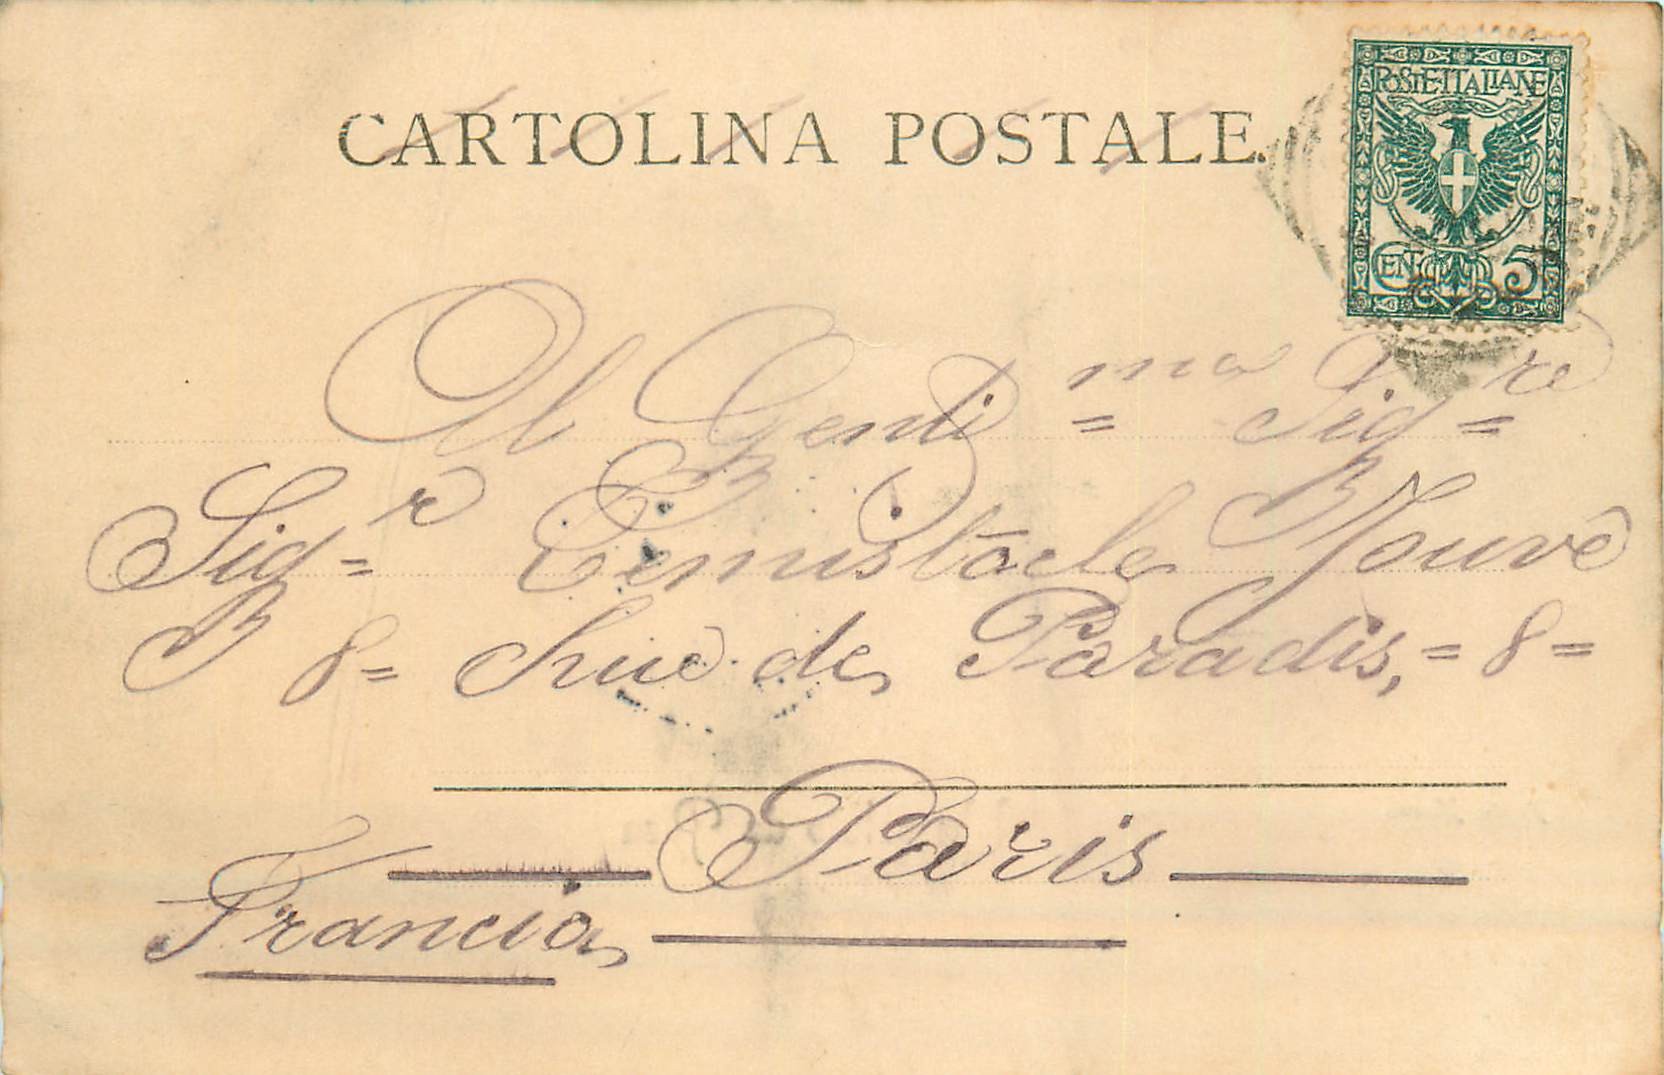 CARTOLINA POSTALE.
POSTE·ITALIANE
CEN. 5
Al Gentilma Sigre
Sigr Temistocle Jouve
8= Rue de Paradis, =8=
Paris
Francia